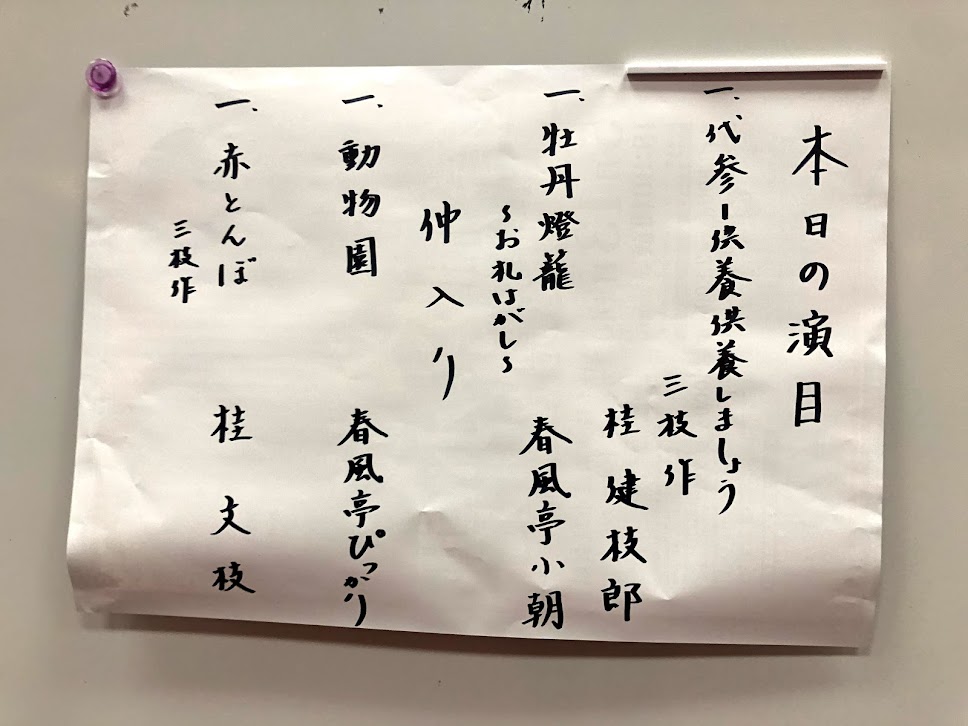 本日の演目
一、代参ー供養供養しましょう
三枝作
桂健枝郎
一、牡丹燈籠
～お札はがし～
春風亭小朝
仲入り
一、動物園
春風亭ぴっかり
一、赤とんぼ
三枝作
桂文枝